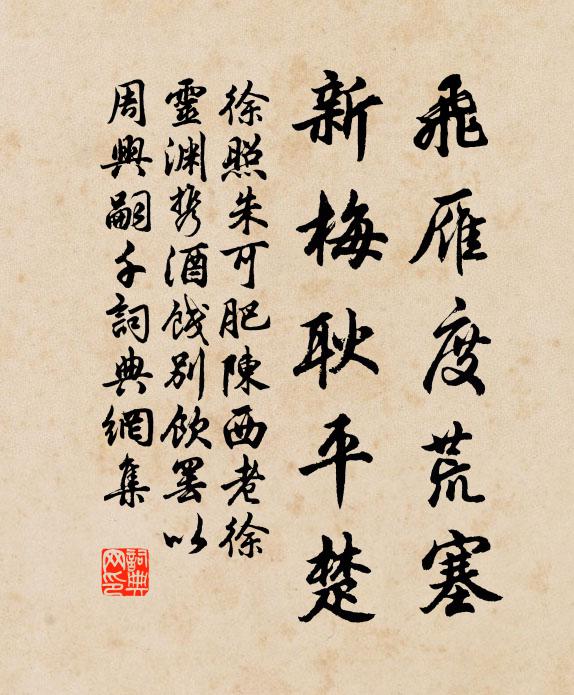 飛雁度荒塞
新梅耿平楚
徐照朱可肥陳西老徐
靈渊携酒餞別飲罢以
周興嗣千詞典網集
詞典网印